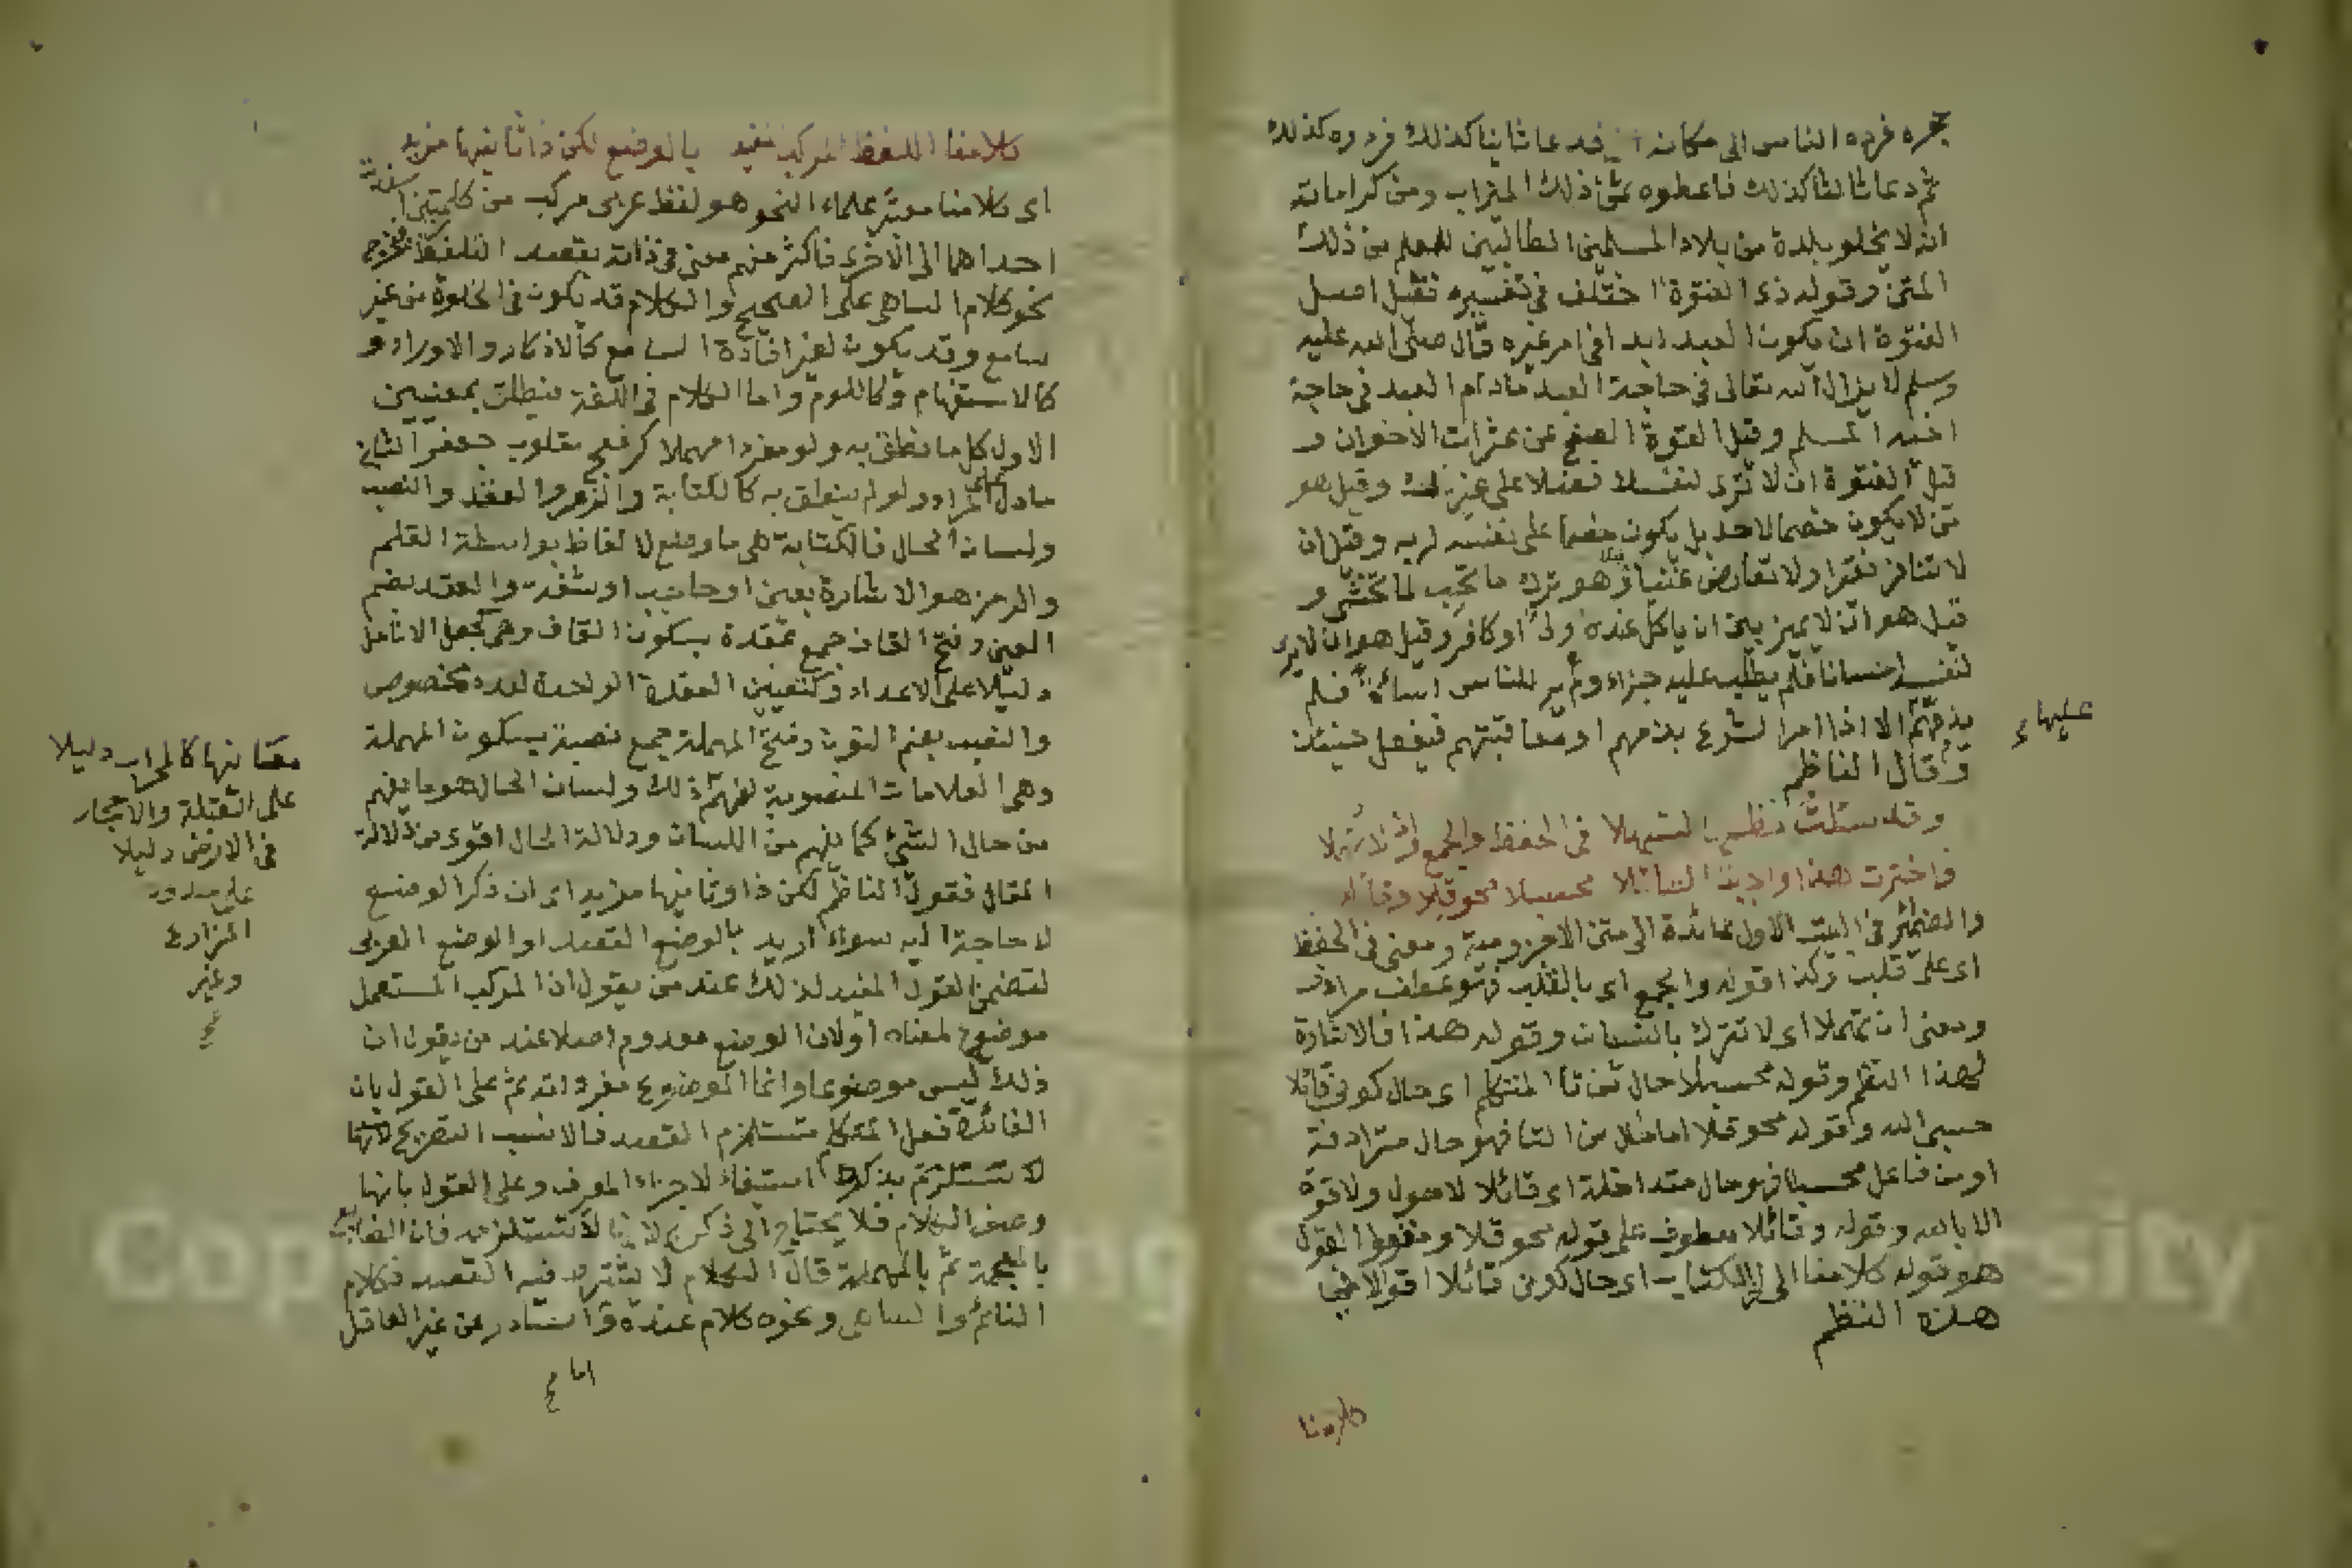 بحره فرده الناس الى مكانه فدعا ثانيا كذلك فردوه كذلك
ثم دعا ثالثا كذلك فاعطوه ثمن ذلك الميزاب ومن كراماته
انه لا يخلو بلدة من بلاد المسلمين الطالبين للعلم من ذلك
المتن وقوله ذى الفتوة اختلف فى تفسيره فقيل اصل
الفتوة ان يكون العبد ابدا فى امر غيره قال صلى الله عليه
وسلم لا يزال الله تعالى فى حاجة العبد مادام العبد فى حاجة
اخيه المسلم وقيل الفتوة الصفح عن عثرات الاخوان و
قيل الفتوة ان لا ترى لنفسك فضلا على غيرك وقيل هو
من لا يكون خصما لاحد بل يكون خصما على نفسه لربه وقيل ان
لا تنافر فقيرا ولا تعارض غنيا وقيل هو ترك ما تحب لما تخشى و
قيل هو ان لا يميز بين ان ياكل عنده ولى او كافر وقيل هو ان لا يرى
لنفسه احسانا فلم يطلب عليه جزاء ولم ير للناس اساءة فلم
يذمهم الا اذا امر الشرع بذمهم او معاقبتهم فيفعل حينئذ
عليها
وقال الناظم
وقد سئلت نظمها لتسهلا فى الحفظ والجمع وان لا تهملا
فاخترت هذا وابتدا التسائلا محسبلا محوقلا وقائلا
والضمير فى البيت الاول عائدة الى متن الاجرومية ومعنى فى الحفظ
اى على قلب وكذا قوله والجمع اى بالقلب فهو عطف مرادف
ومعنى ان تهملا اى لا تترك بالنسيان وقوله هذا فالاشارة
لهذا النظم وقوله محسبلا حال من تا المتكلم اى حال كونى قائلا
حسبى الله وقوله محوقلا اما حال من التا فهو حال مترادفة
او من فاعل محسبلا فهو حال متداخلة اى قائلا لا حول ولا قوة
الا بالله وقوله وقائلا معطوف على قوله محوقلا ومفعول القول
هو قوله كلامنا الى اخر الكتاب اى حال كونى قائلا اقوالا فى
هذه النظم
كلامنا
كلامنا اللفظ المركب المفيد بالوضع لكن ذا ثانيها مزيد
اى كلامنا معشر علماء النحو هو لفظ عربى مركب من كلمتين اسندت
احداهما الى الاخرى فاكثر مفهم معنى فى ذاته بقصد التلفظ فخرج
نحو كلام الساهى على الصحيح والكلام قد يكون فى الخلوة من غير
سامع وقد يكون لغير افادة السامع كالاذكار والاوراد و
كالاستفهام وكاللوم واما الكلام فى اللغة فيطلق بمعنيين
الاول كل ما نطق به ولو مفردا مهملا كرفعج مقلوب جعفر الثانى
ما دل على المراد ولو لم ينطق به كالكتابة والرمز والعقد والنصب
ولسان الحال فالكتابة هى ما وضع لالفاظ بواسطة القلم
والرمز هو الاشارة بعين او حاجب او شفة والعقد بضم
العين وفتح القاف جمع عقدة بسكون القاف وهى كجعل الانامل
دليلا على الاعداد وكتعيين العقدة الواحدة لعدد مخصوص
والنصب بضم النون وفتح المهملة جمع نصبة بسكون المهملة
وهى العلامات المنصوبة لفهم ذلك ولسان الحال هو ما يفهم
من حال الشئ كما يفهم من اللسان ودلالة الحال اقوى من دلالة
المقال فقول الناظم لكن ذا وثانيها مزيد اى ان ذكر الوضع
لا حاجة اليه سواء اريد بالوضع القصد او الوضع العربى
لتضمن القول المفيد لذلك عند من يقول ان المركب المستعمل
موضوع لمعناه اولان الوضع معدوم اصلا عند من يقول ان
ذلك ليس موضوعا وانما الموضوع مفرداته ثم على القول بان
الفائدة فعل المتكلم تستلزم القصد فالانسب التصريح لانها
لا تستلزم بذكرها استيفاء لاجزاء المعرف وعلى القول بانها
وصف الكلام فلا يحتاج الى ذكره لانها لا تستلزمه فان الضائع
بالمعجمة ثم بالمهملة قال الكلام لا يشترط فيه القصد فكلام
النائم والساهى ونحوه كلام عنده والصادر من غير العاقل
اما
معانيها كالمحراب دليلا
على القبلة والاحجار
فى الارض دليلا
على حدود
المزارع
وغير